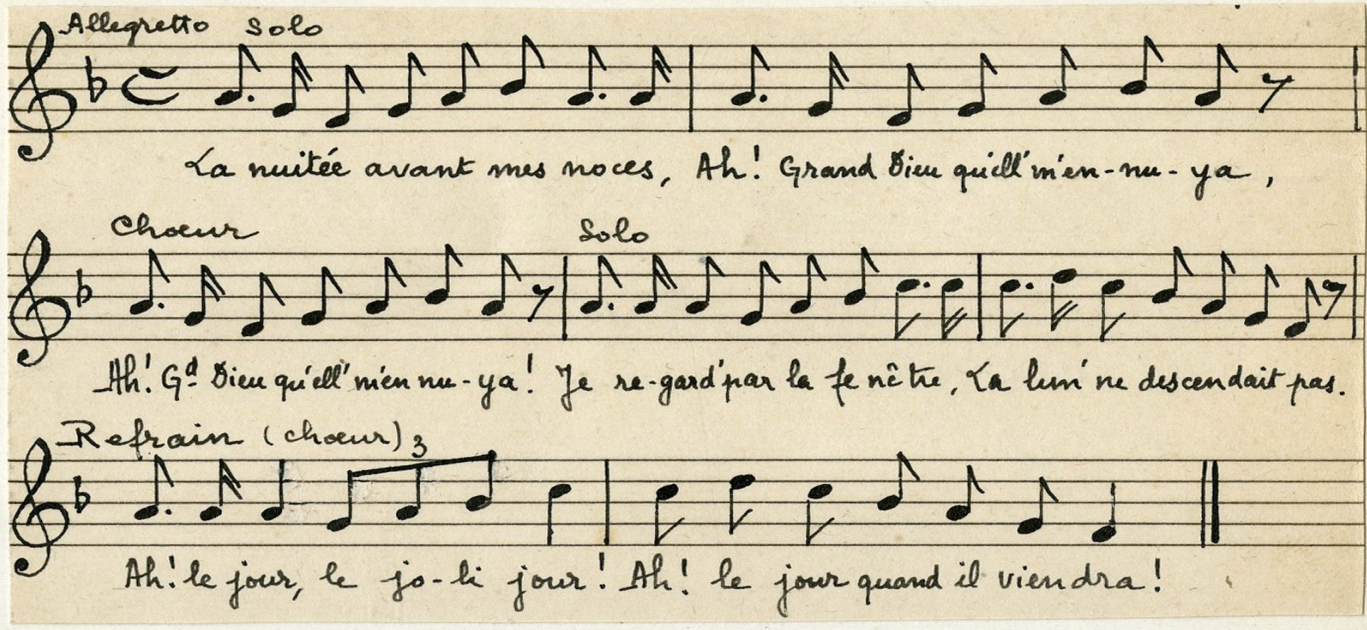 Allegretto Solo
La nuitée avant mes noces, Ah! Grand Dieu qu'ell' m'en-nu-ya,
Chœur Solo
Ah! Gd Dieu qu'ell' m'en nu-ya! Je re-gard' par la fe nêtre, La lun' ne descendait pas.
Refrain (chœur) 3
Ah! le jour, le jo-li jour! Ah! le jour quand il viendra!